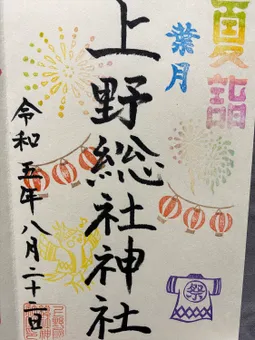 夏詣
葉月
上野総社神社
令和五年八月二十一日
祭